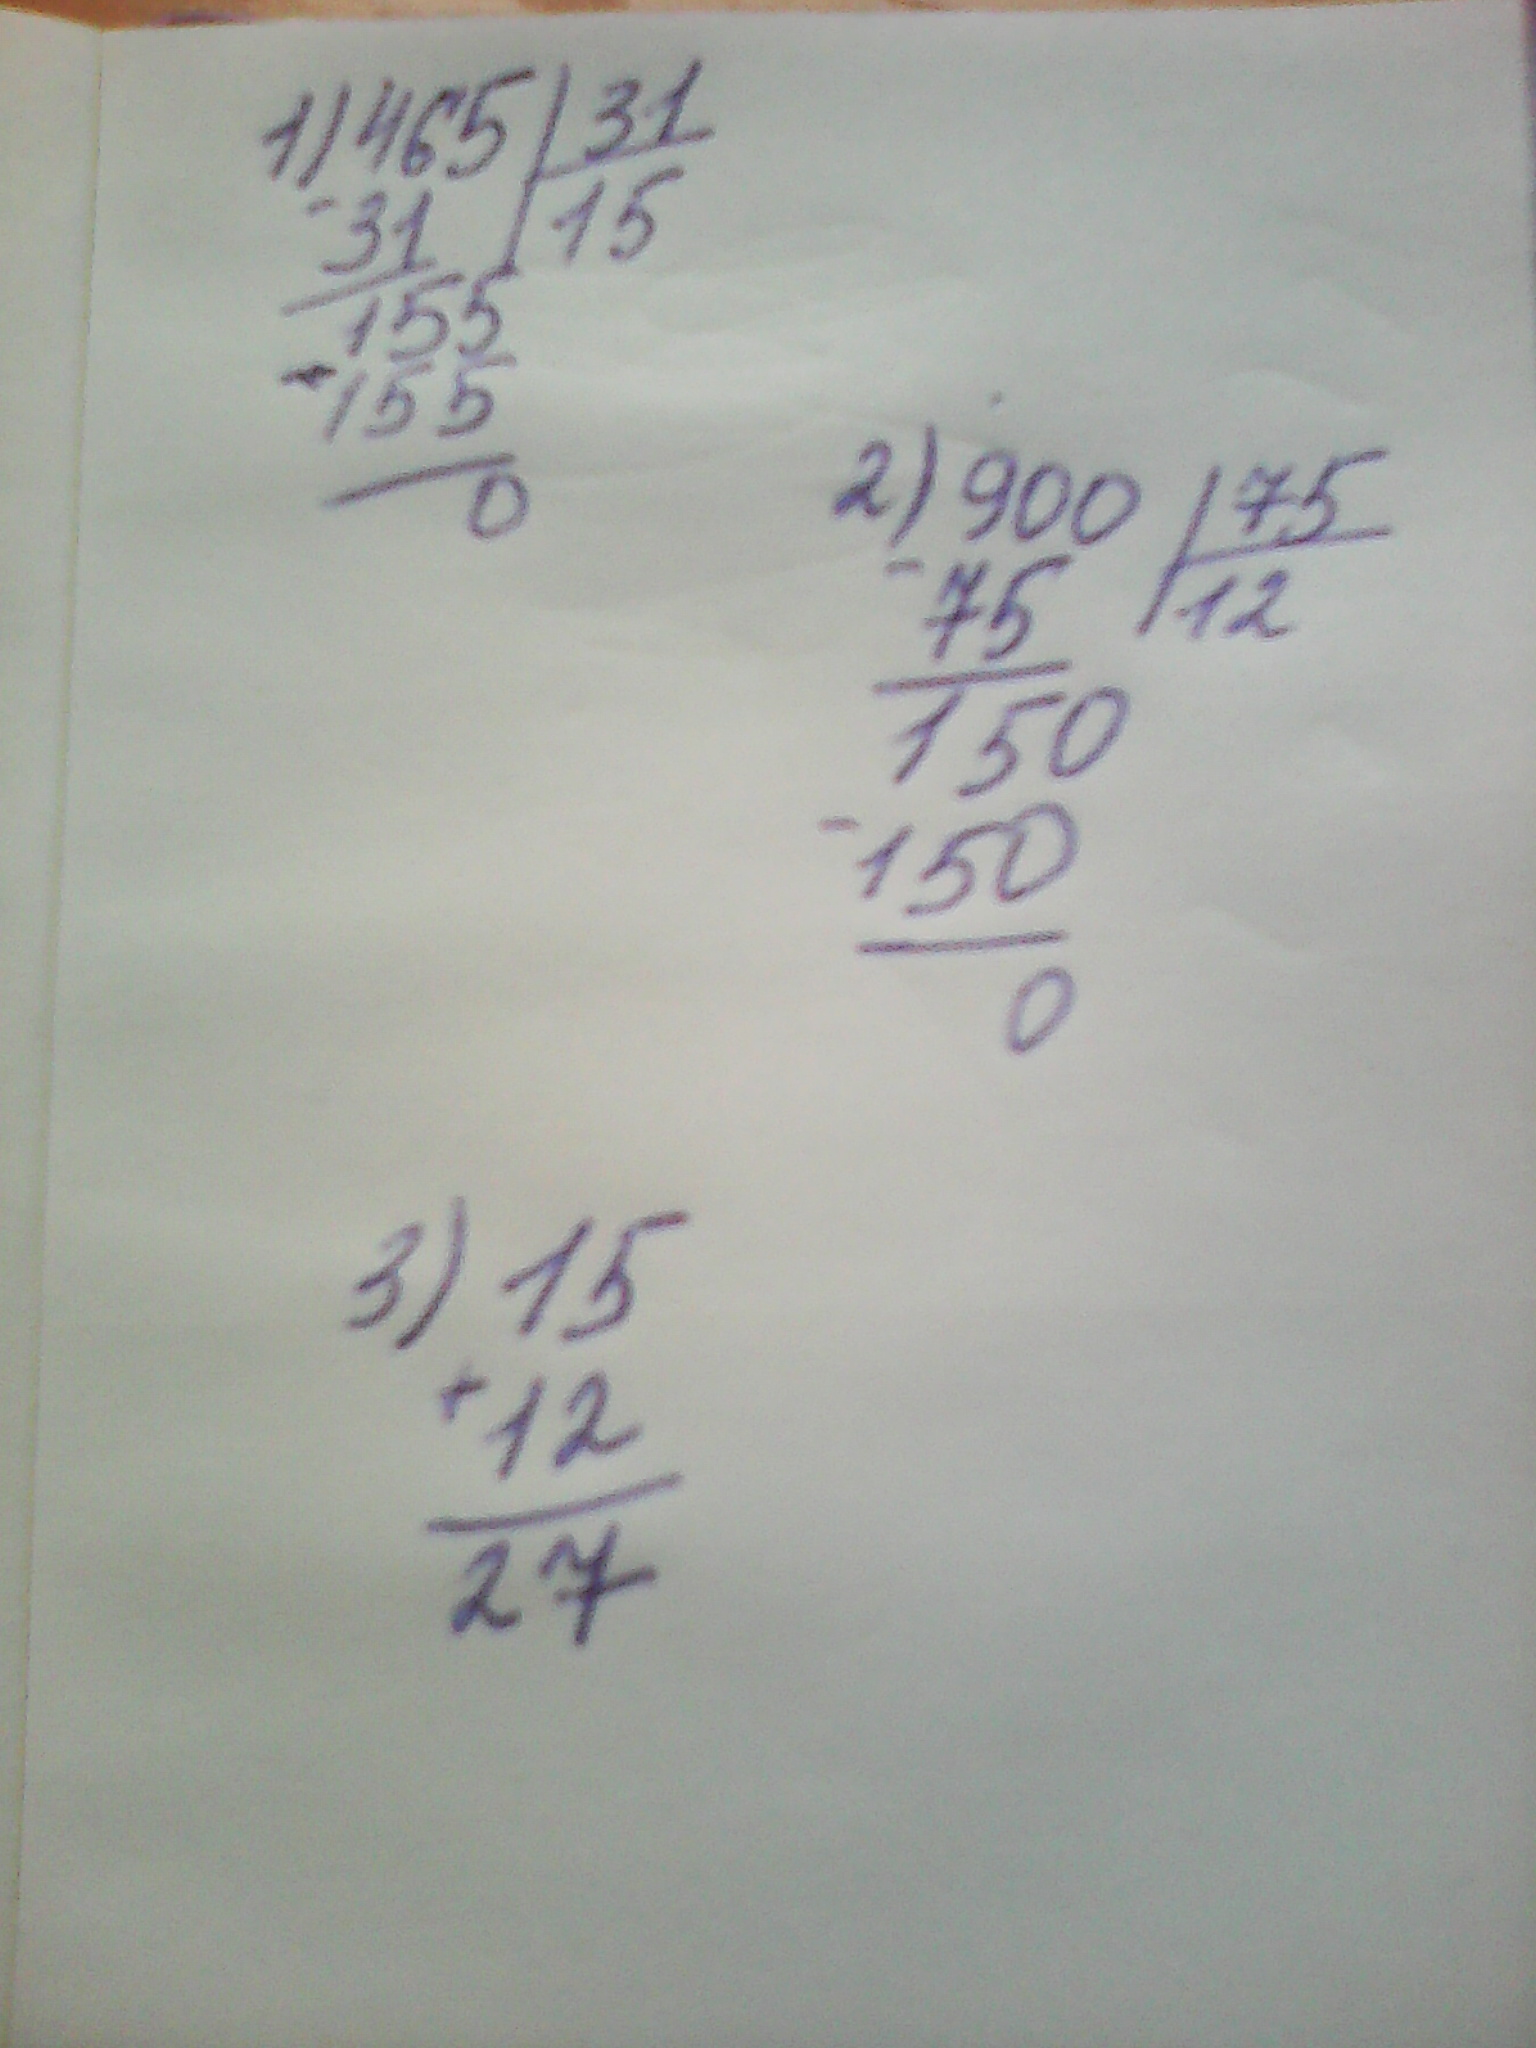 1) 465 | 31
- 31 | 15
155
- 155
0
2) 900 | 75
- 75 | 12
150
- 150
0
3) 15
+ 12
27